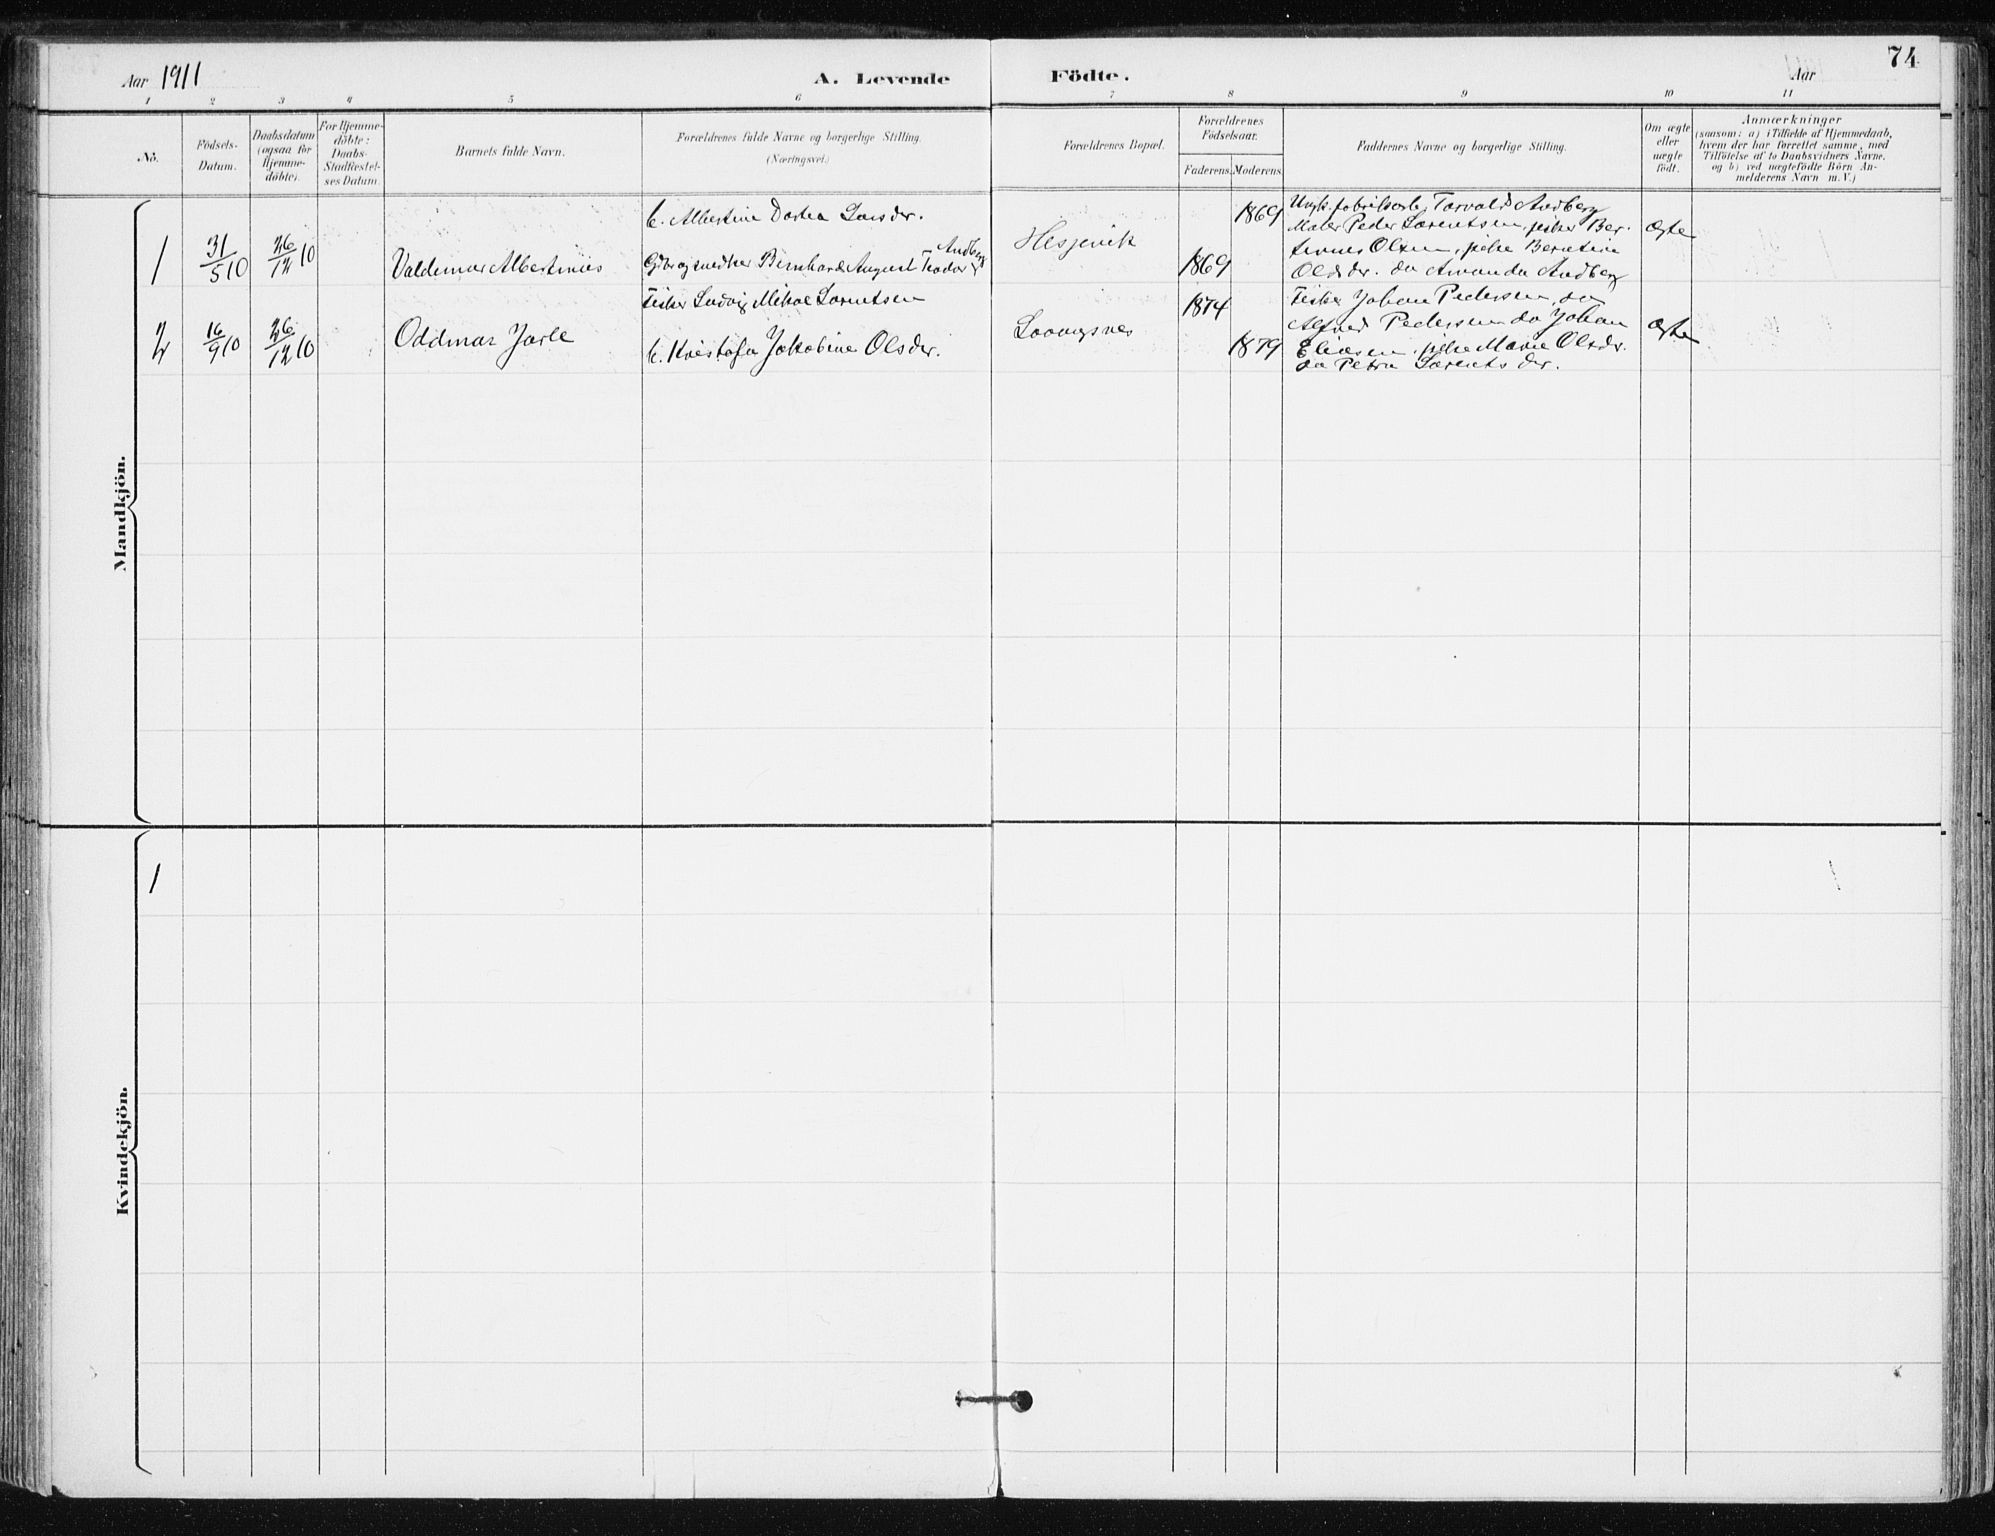 74
Aar 1911
A. Levende Födte.
Aar
1 2 3 4 5 6 7 8 9 10 11
No.
Födsels-
Datum.
Daabsdatum
(ogsaa for
Hjemme-
döbte).
For Hjemme-
döbte:
Daabs-
Stadfæstel-
ses Datum.
Barnets fulde Navn.
Forældrenes fulde Navne og borgerlige Stilling.
(Næringsvei.)
Forældrenes Bopæl.
Forældrenes
Födselsaar.
Faderens. Moderens.
Faddernes Navne og borgerlige Stilling.
Om ægte
eller
uægte
födt.
Anmærkninger
(saasom: a) i Tilfælde af Hjemmedaab,
hvem der har forrettet samme, med
Tilföielse af to Daabsvidners Navne,
og b) ved uægtefödte Börn An-
melderens Navn m. V.)
Mandkjön.
1
31/5 10
26/12 10
Valdemar Albertinius
C. Albertine Dortea Larsdr.
Andberg
Bernhard August Teodor
Hesjevik
1869
1869
Torvald Andberg
Maler Peder Lorentsen, fisker Ber-
Olsen, pike Berntine
Olsdr. do Amanda Andberg
Ægte
2
16/9 10
26/12 10
Oddmar Jarle
Fisker Ludvig Mikal Lorentsen
C. Kristofa Jakobine Olsdr.
1874
1879
Fisker Johan Pedersen, do
Alfred Pedersen do Johan
Eliasen, pike Marie Olsdr.
do Petra Lorentsdr.
Ægte
Kvindekjön.
1